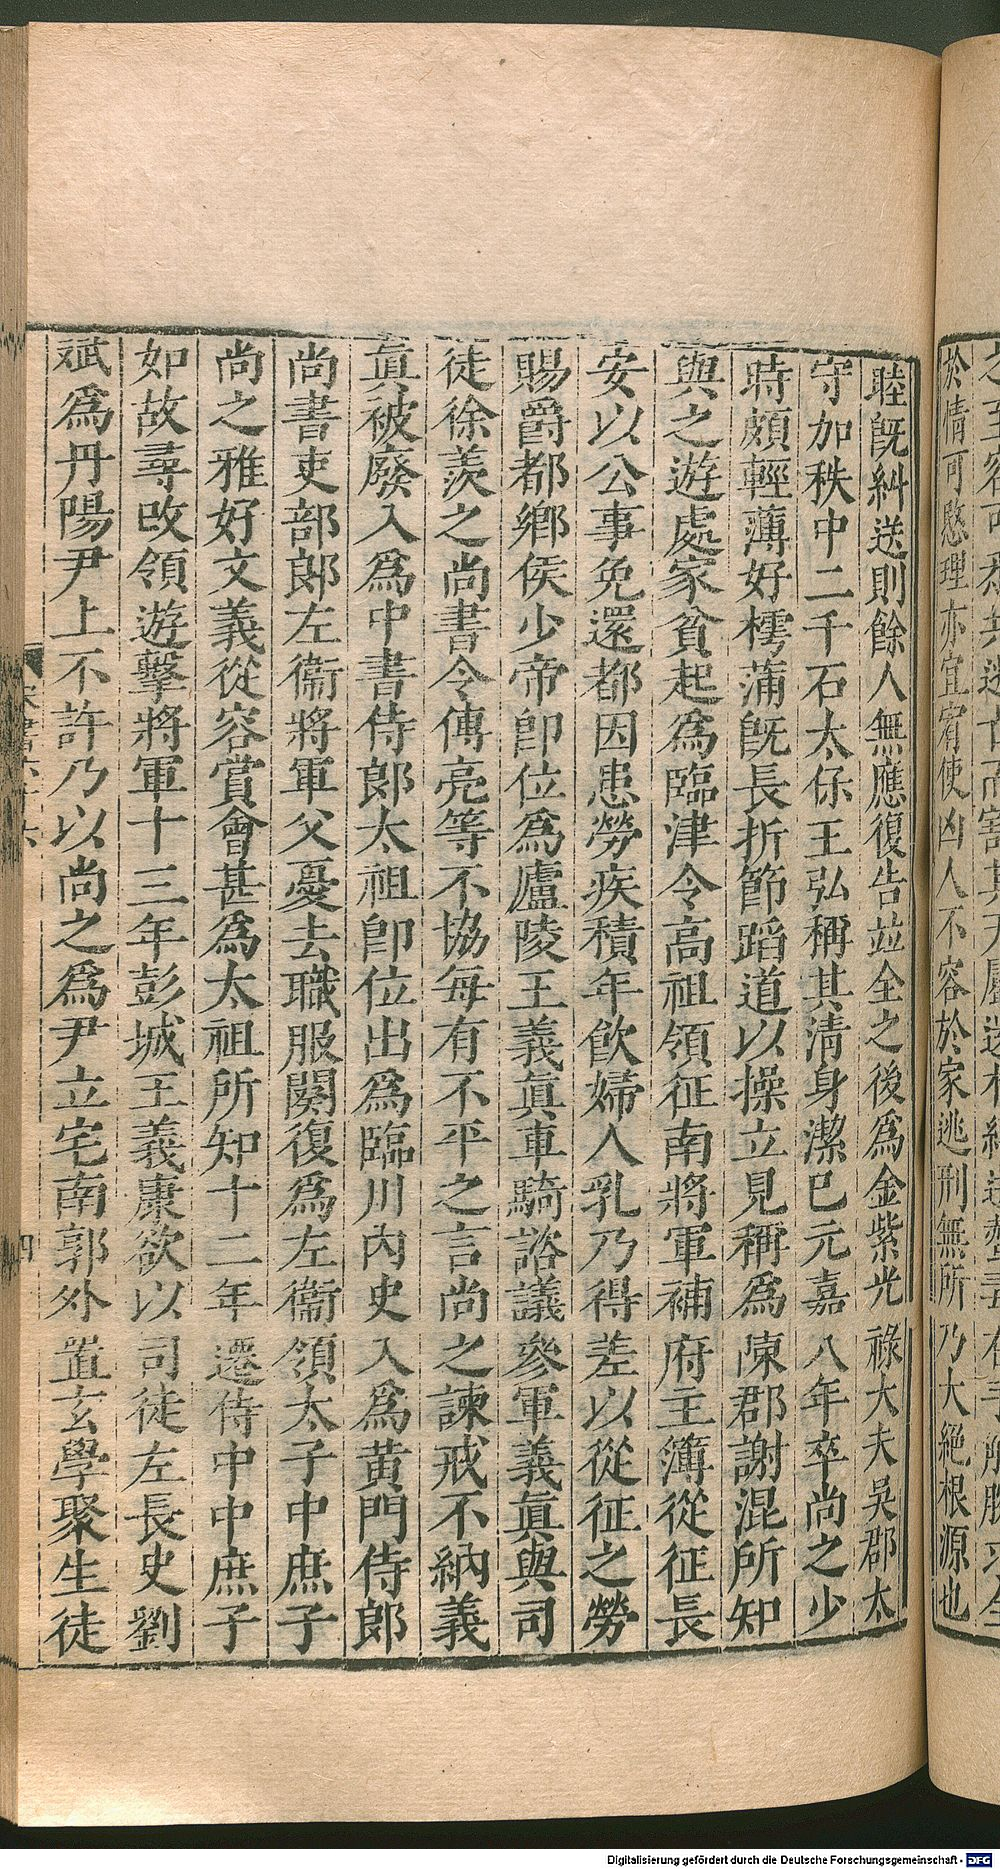 於情可愍理亦宜宥使凶人不容於家逃刑無所乃大絕根源也
睦旣糾送則餘人無應復告並全之後爲金紫光祿大夫吳郡太
守加秩中二千石太保王弘稱其淸身潔已元嘉八年卒尚之少
時頗輕薄好樗蒲旣長折節蹈道以操立見稱爲陳郡謝混所知
與之遊處家貧起爲臨津令高祖領征南將軍補府主簿從征長
安以公事免還都因患勞疾積年飮婦人乳乃得差以從征之勞
賜爵都鄕侯少帝卽位爲廬陵王義眞車騎諮議參軍義眞與司
徒徐羨之尚書令傳亮等不協每有不平之言尚之諫戒不納義
眞被廢入爲中書侍郎太祖卽位出爲臨川內史入爲黃門侍郎
尚書吏部郎左衞將軍父憂去職服闋復爲左衞領太子中庶子
尚之雅好文義從容賞會甚爲太祖所知十二年遷侍中中庶子
如故尋改領遊擊將軍十三年彭城王義康欲以司徒左長史劉
斌爲丹陽尹上不許乃以尚之爲尹立宅南郭外置玄學聚生徒
四
Digitalisierung gefördert durch die Deutsche Forschungsgemeinschaft - DFG